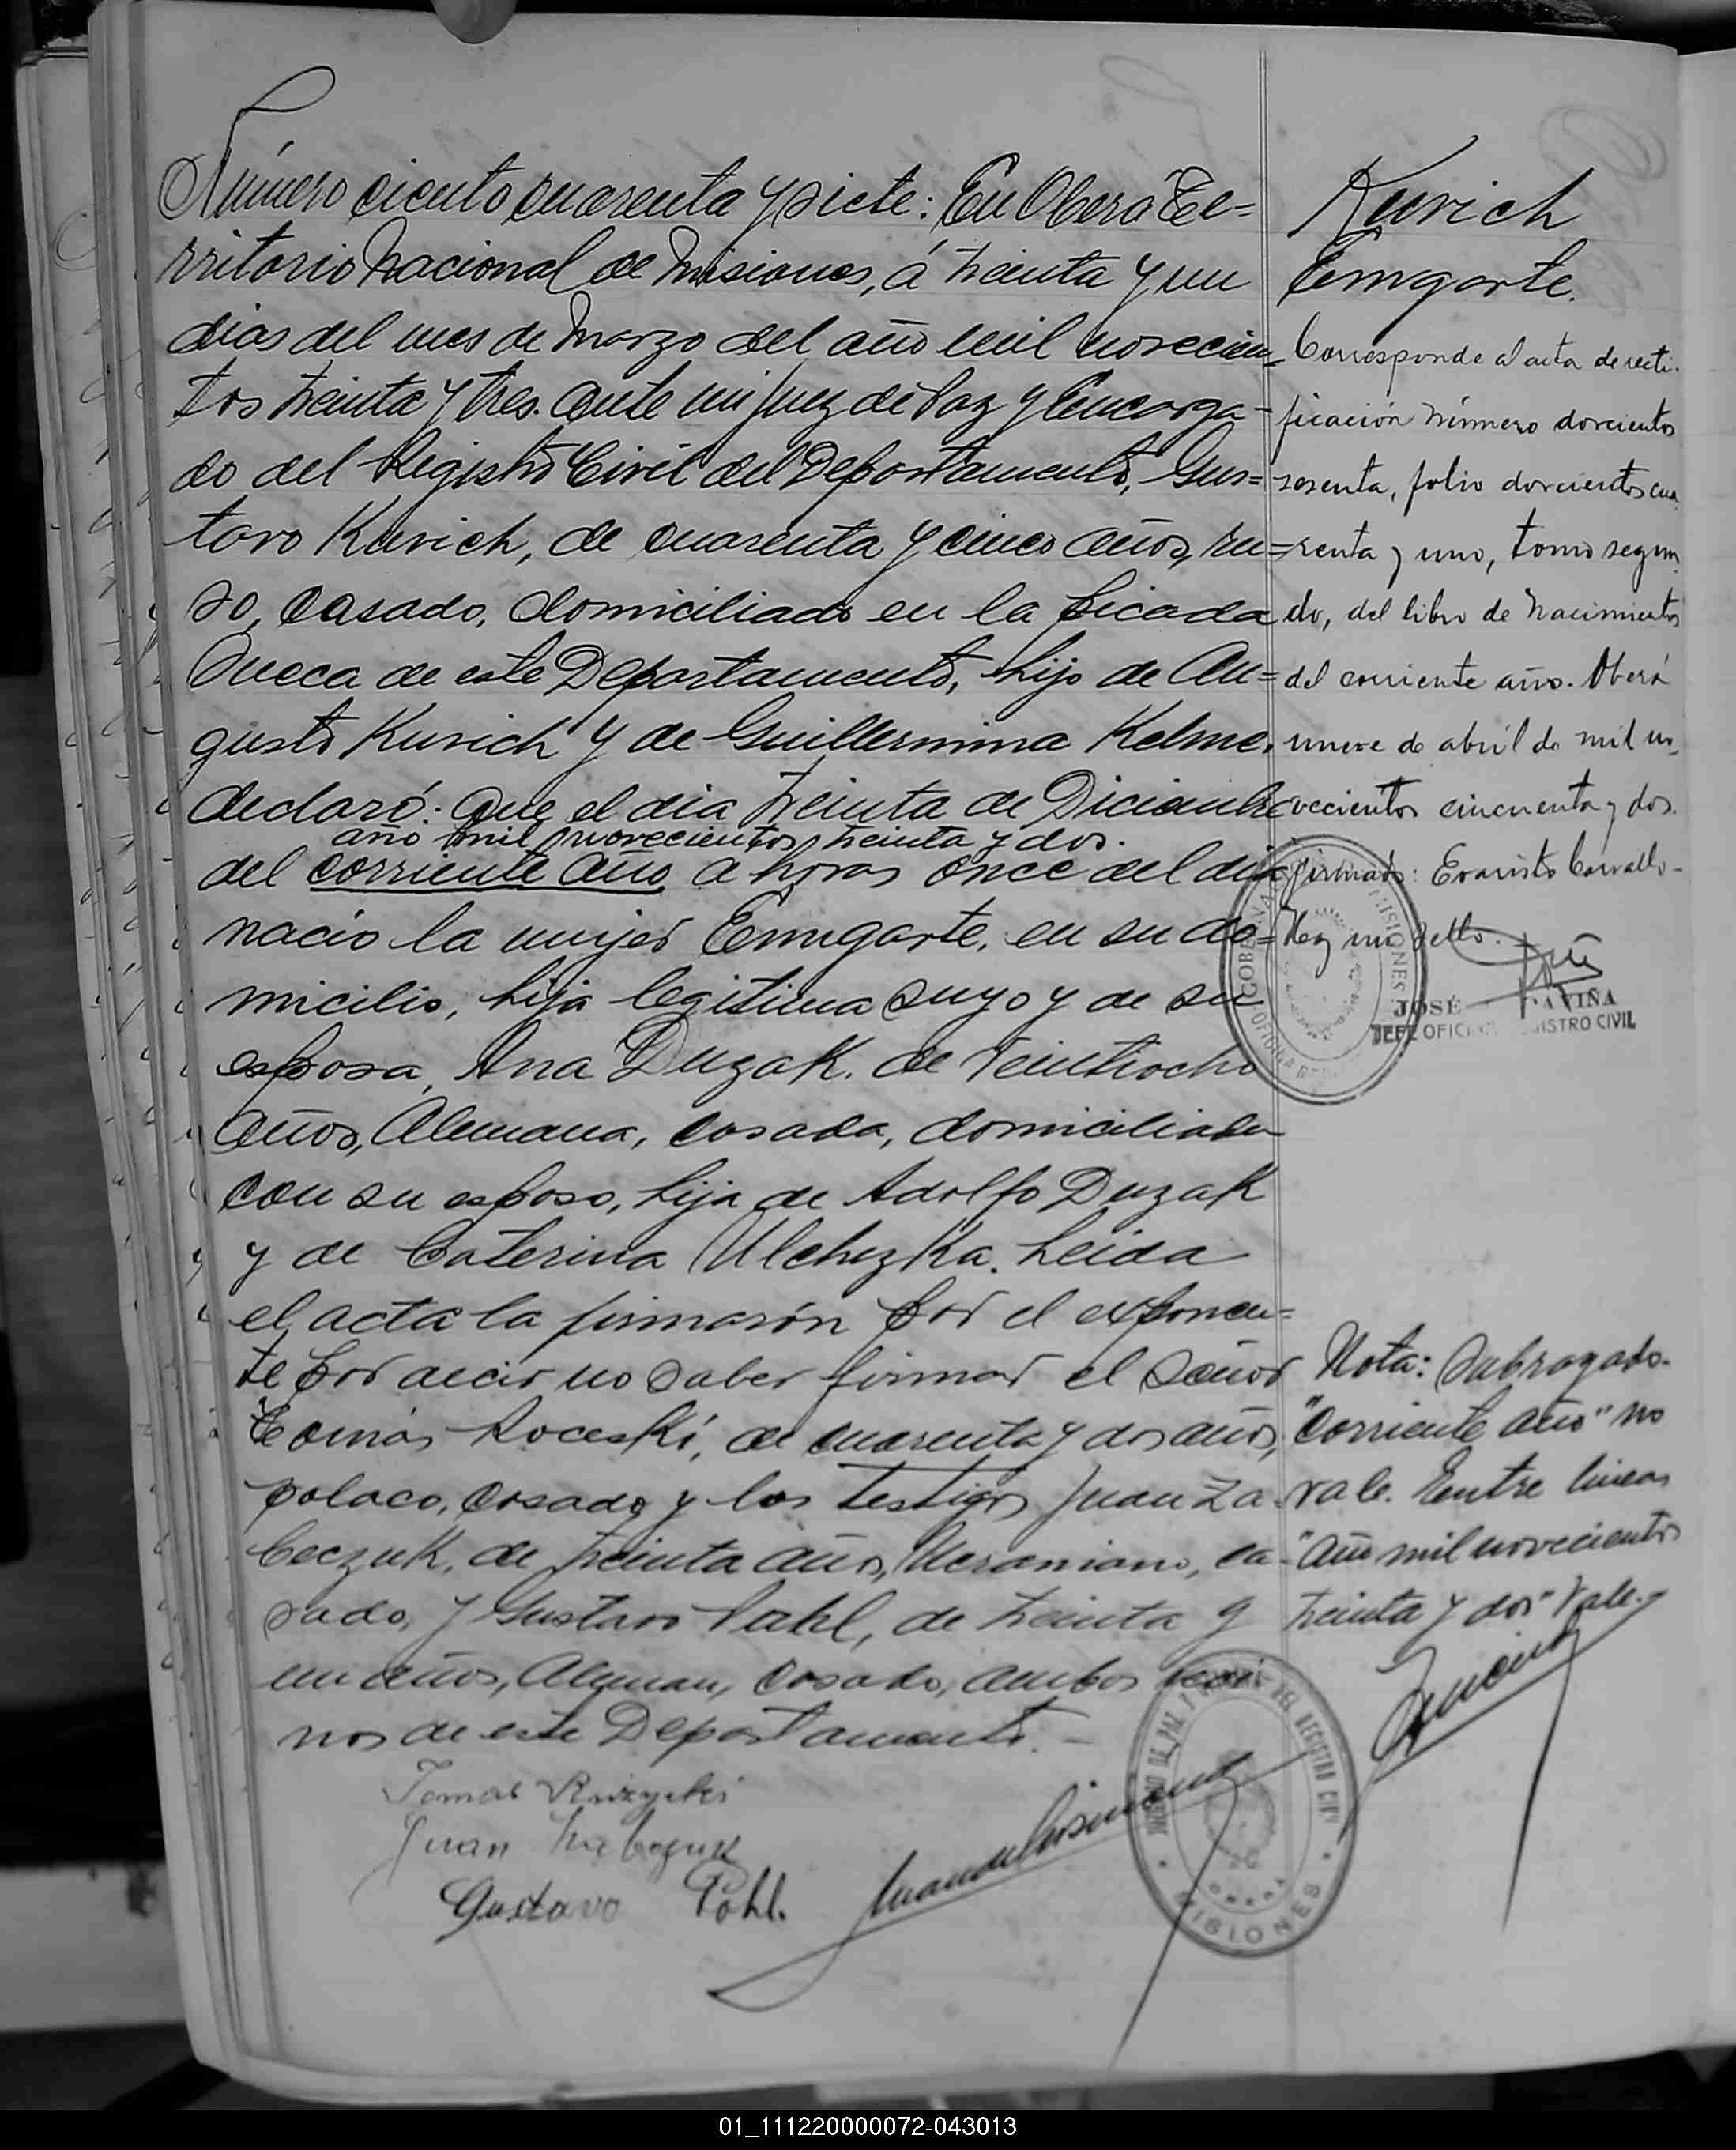 Número ciento cuarenta y siete: En Oberá Te=
rritorio Nacional de Misiones, á treinta y un
dias del mes de Marzo del año mil novecien=
tos treinta y tres. ante mi Juez de Paz y Encarga=
do del Registro Civil del Departamento, Gus=
tavo Kurich, de cuarenta y cinco años, ru=
so, casado, domiciliado en la picada
Sueca de este Departamento, hijo de Au=
gusto Kurich y de Guillermina Kelme,
declaró: Que el dia treinta de Diciembre
año mil novecientos treinta y dos.
del corriente año a horas once del dia
nació la mujer Emgarte, en su do=
micilio, hija legitima suya y de su
esposa, Ana Duzak. de veintiocho
años, Alemana, casada, domiciliada
con su esposo, hija de Adolfo Duzak
y de Caterina Ulchezka. Leida
el acta la firmarón por el exponen=
te por decir no saber firmar el señor
Tomás Roceski, de cuarenta y dos años,
polaco, casado y los testigos Juan Za=
beczuk, de treinta años, Ucraniano, ca=
sado, y Gustavo Pahl, de treinta y
un años, Aleman, casado, ambos veci
nos de este Departamento.-
Tomas
Juan
Gustavo Pohl.
Kurich
Emgarte.
Corresponde al acta de recti-
ficación número doscientos
sesenta, folio doscientos cua
renta y uno, tomo segun
do, del libro de Nacimientos
del corriente año. Oberá
nueve de abril de mil no-
vecientos cincuenta y dos.
firmado: Evaristo Carvallo-
Hay un sello.
JOSÉ AVIÑA
JEFE OFICINA REGISTRO CIVIL
Nota: Subrayado.
"corriente año" no
vale. Entre lineas
"Año mil novecientos
treinta y dos" Vale.
JUZGADO DE PAZ DEL REGISTRO CIVIL
OBERA
MISIONES
01_111220000072-043013